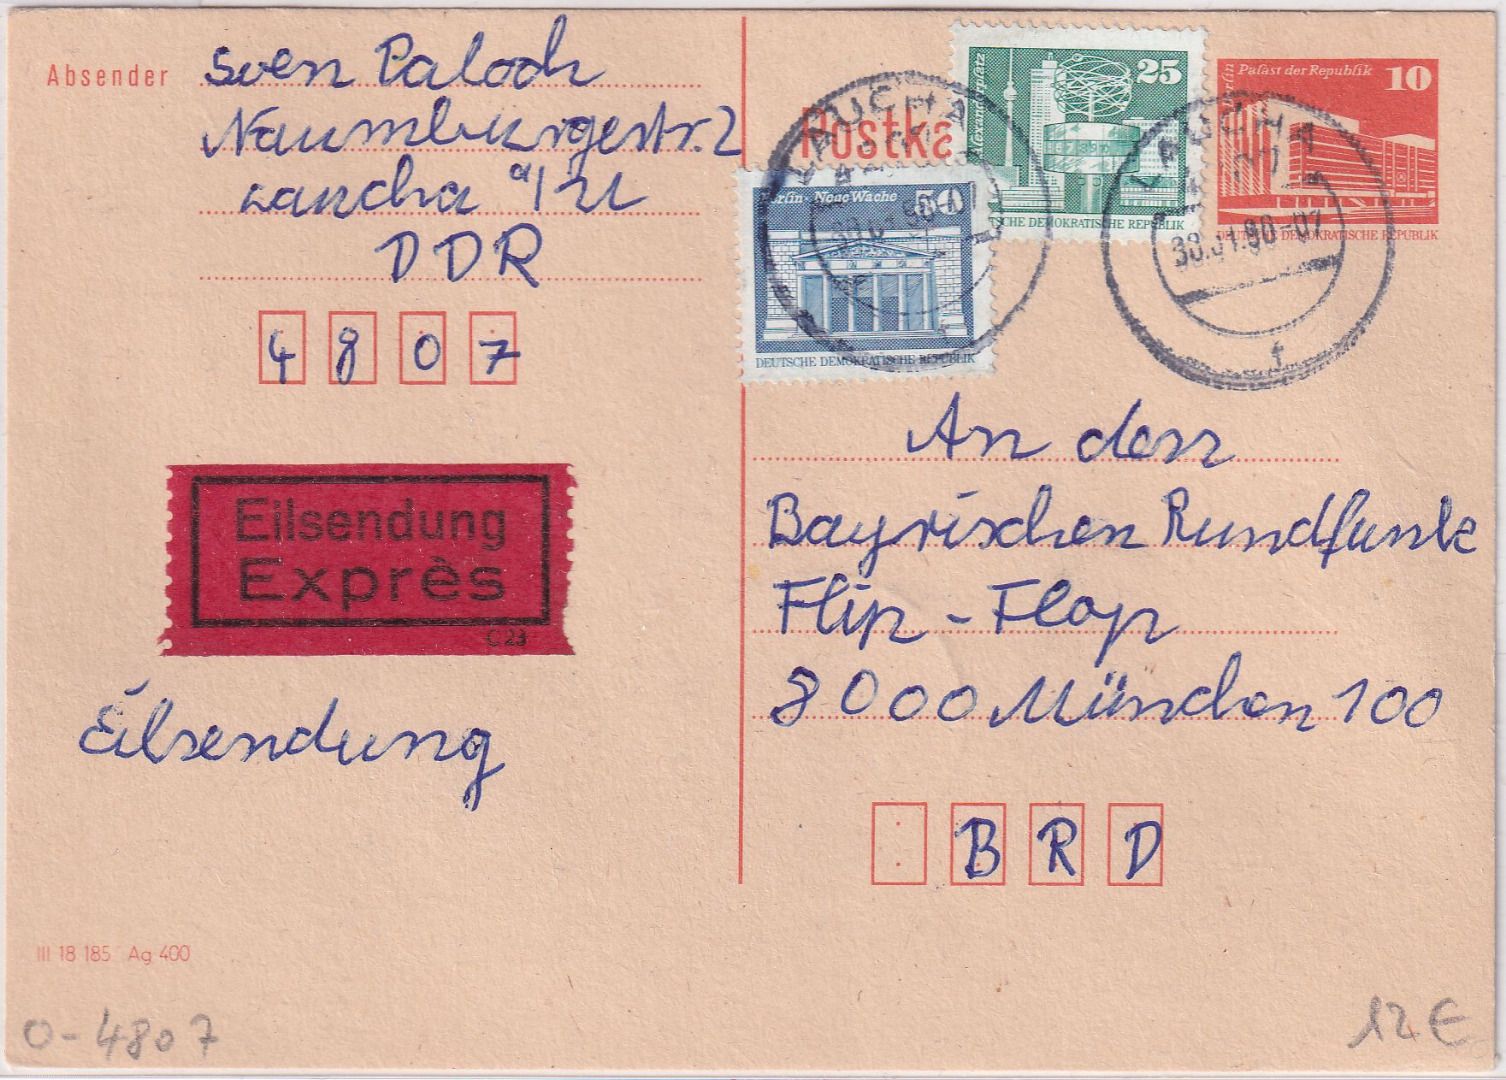 Absender Sven Paloch
Naumburgestr. 2
Laucha a/U
DDR
4807
Eilsendung
Exprès
C 23
Eilsendung
III 18 185 Ag 400
O-4807
Postka
Berlin · Neue Wache 50
DEUTSCHE DEMOKRATISCHE REPUBLIK
Alexanderplatz 25
SCHE DEMOKRATISCHE REPUBLIK
Berlin Palast der Republik 10
DEUTSCHE DEMOKRATISCHE REPUBLIK
LAUCHA
4807
30.01.90-07
f
LAUCHA
4807
30.01.90-07
f
An den
Bayrischen Rundfunk
Flip-Flop
8000 München 100
BRD
12€